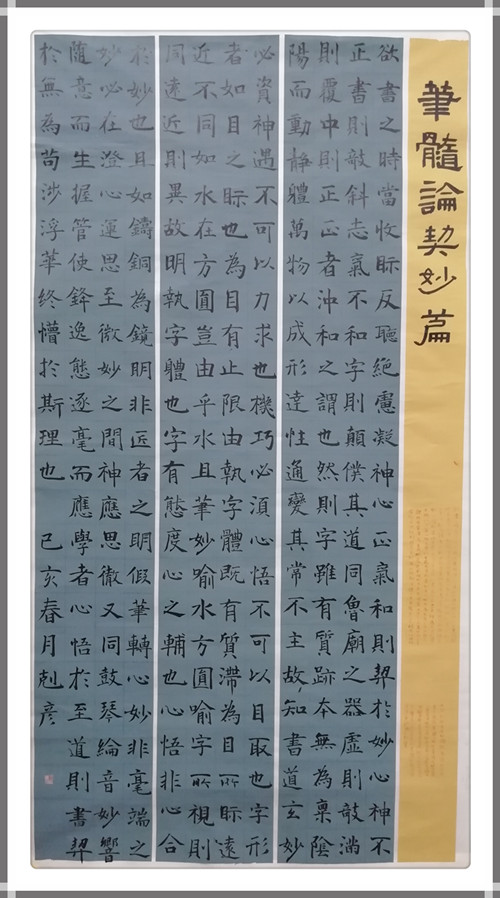 筆髓論契妙篇
欲書之時當收眎反聽絕慮凝神心正氣和則契於妙心神不
正書則敧斜志氣不和字則顛僕其道同魯廟之器虛則敧滿
則覆中則正正者沖和之謂也然則字雖有質跡本無為稟陰
陽而動靜體萬物以成形達性通變其常不主故知書道玄妙
必資神遇不可以力求也機巧必須心悟不可以目取也字形
者如目之眎也為目有止限由執字體既有質滯為目所眎遠
近不同如水在方圓豈由乎水且筆妙喻水方圓喻字所視則
同遠近則異故明執字體也字有態度心之輔也心悟非心合
於妙也且如鑄銅為鏡明非匠者之明假筆轉心妙非毫端之
妙必在澄心運思至微妙之間神應思徹又同鼓琴綸音妙響
隨意而生握管使鋒逸態逐毫而應學者心悟於至道則書契
於無為苟涉浮華終懵於斯理也 己亥春月剋彥